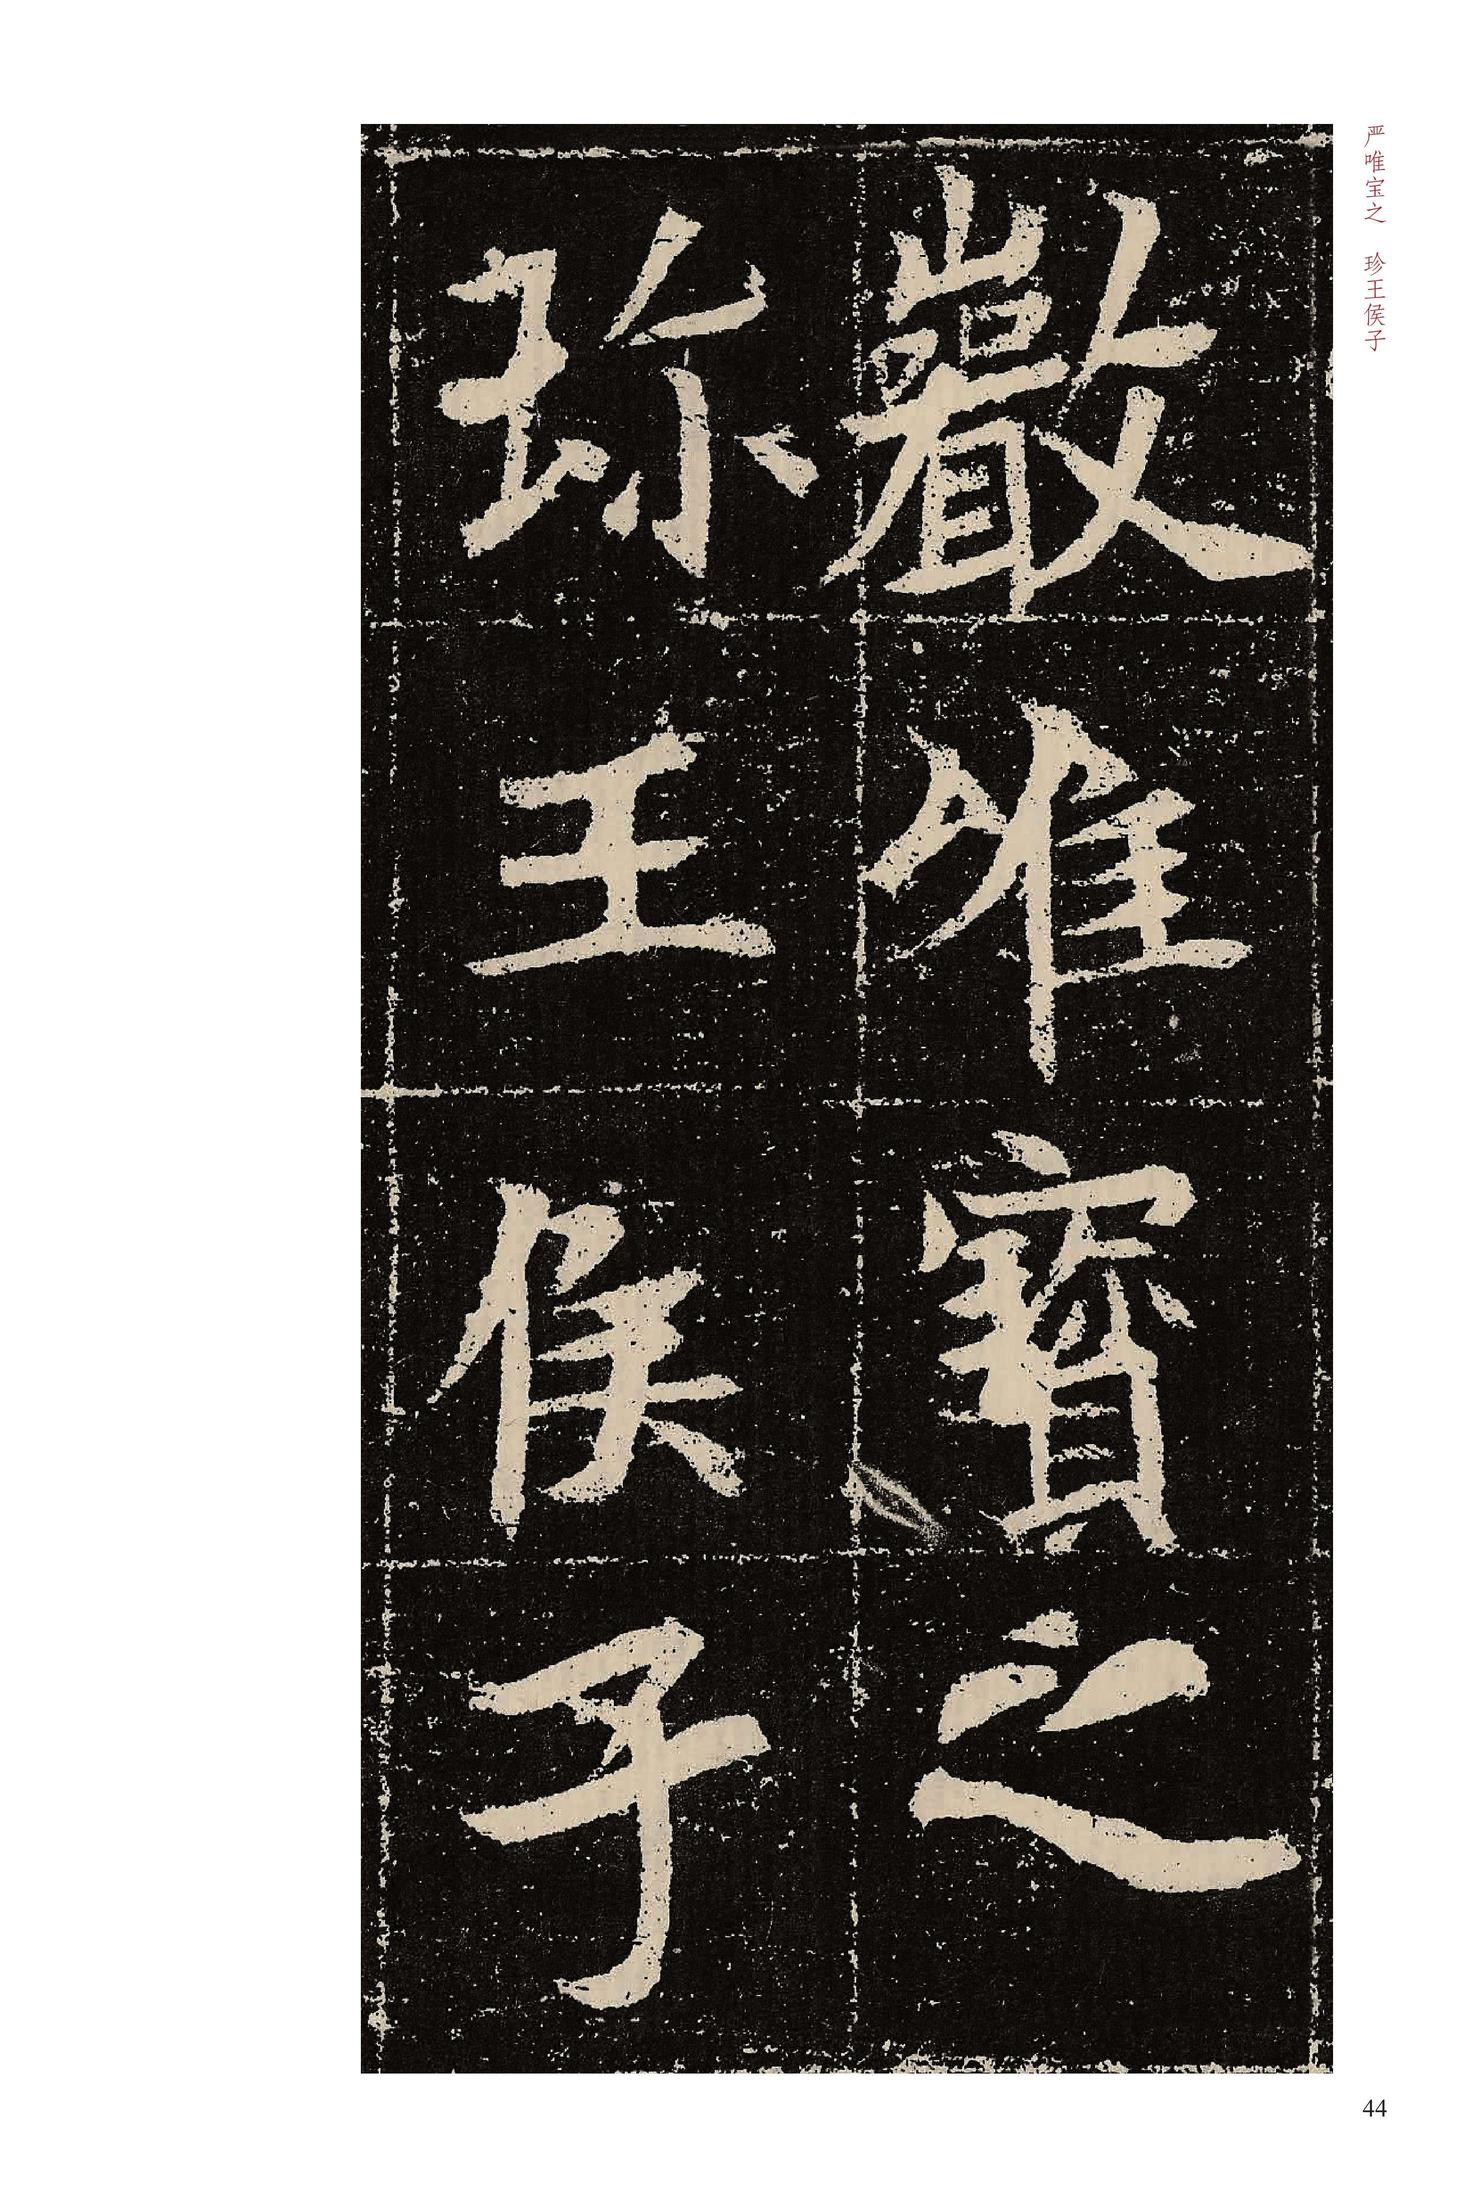 严唯宝之 珍王侯子
巖唯寶之
珎王侯子
44